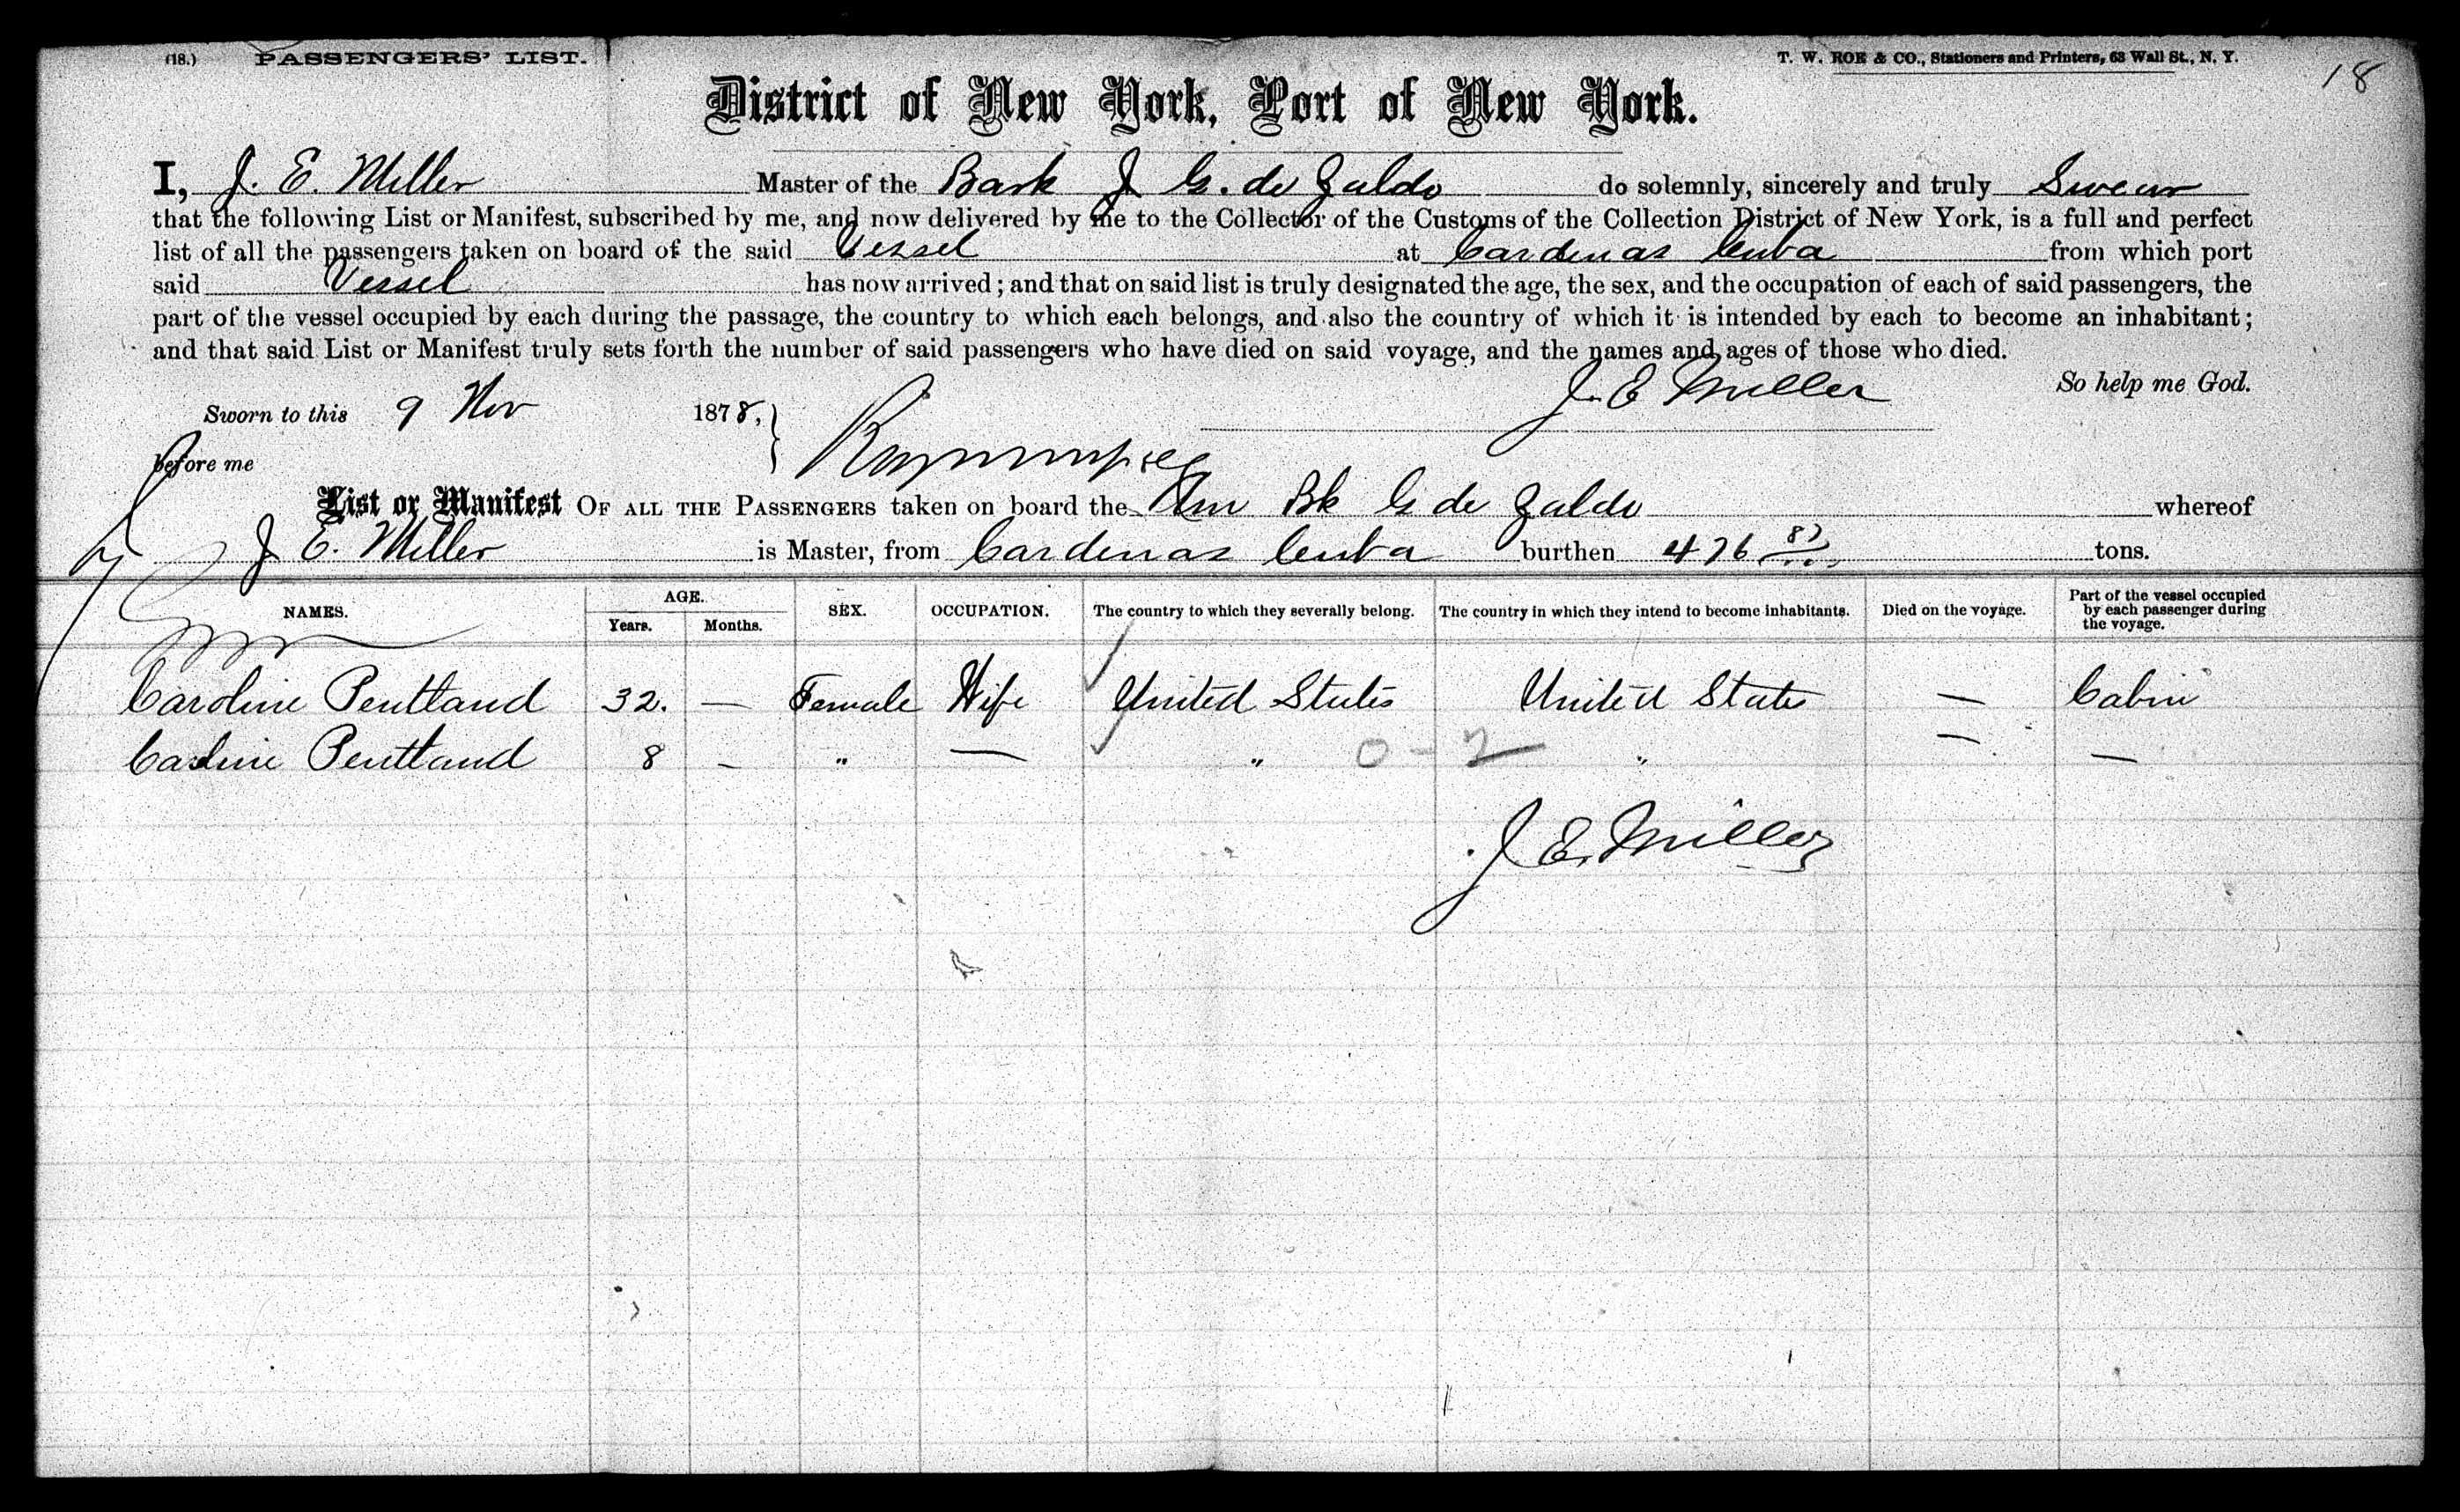 (18.) PASSENGERS' LIST. T. W. ROE & CO., Stationers and Printers, 63 Wall St., N. Y.
18
District of New York, Port of New York.
I, J. E. Miller Master of the Bark J G. de Zaldo do solemnly, sincerely and truly Swear
that the following List or Manifest, subscribed by me, and now delivered by me to the Collector of the Customs of the Collection District of New York, is a full and perfect
list of all the passengers taken on board of the said Vessel at Cardenas Cuba from which port
said Vessel has now arrived; and that on said list is truly designated the age, the sex, and the occupation of each of said passengers, the
part of the vessel occupied by each during the passage, the country to which each belongs, and also the country of which it is intended by each to become an inhabitant;
and that said List or Manifest truly sets forth the number of said passengers who have died on said voyage, and the names and ages of those who died.
J. E Miller So help me God.
Sworn to this 9 Nov 1878,
before me
List or Manifest OF ALL THE PASSENGERS taken on board the Am Bk G de Zaldo whereof
J E. Miller is Master, from Cardenas Cuba burthen 476 tons.
NAMES. AGE. Years. Months. SEX. OCCUPATION. The country to which they severally belong. The country in which they intend to become inhabitants. Died on the voyage. Part of the vessel occupied by each passenger during the voyage.
Caroline Pentland 32. — Female Wife United States United States — Cabin
Caroline Pentland 8 - " — " 0-2 " — —
J E. Miller